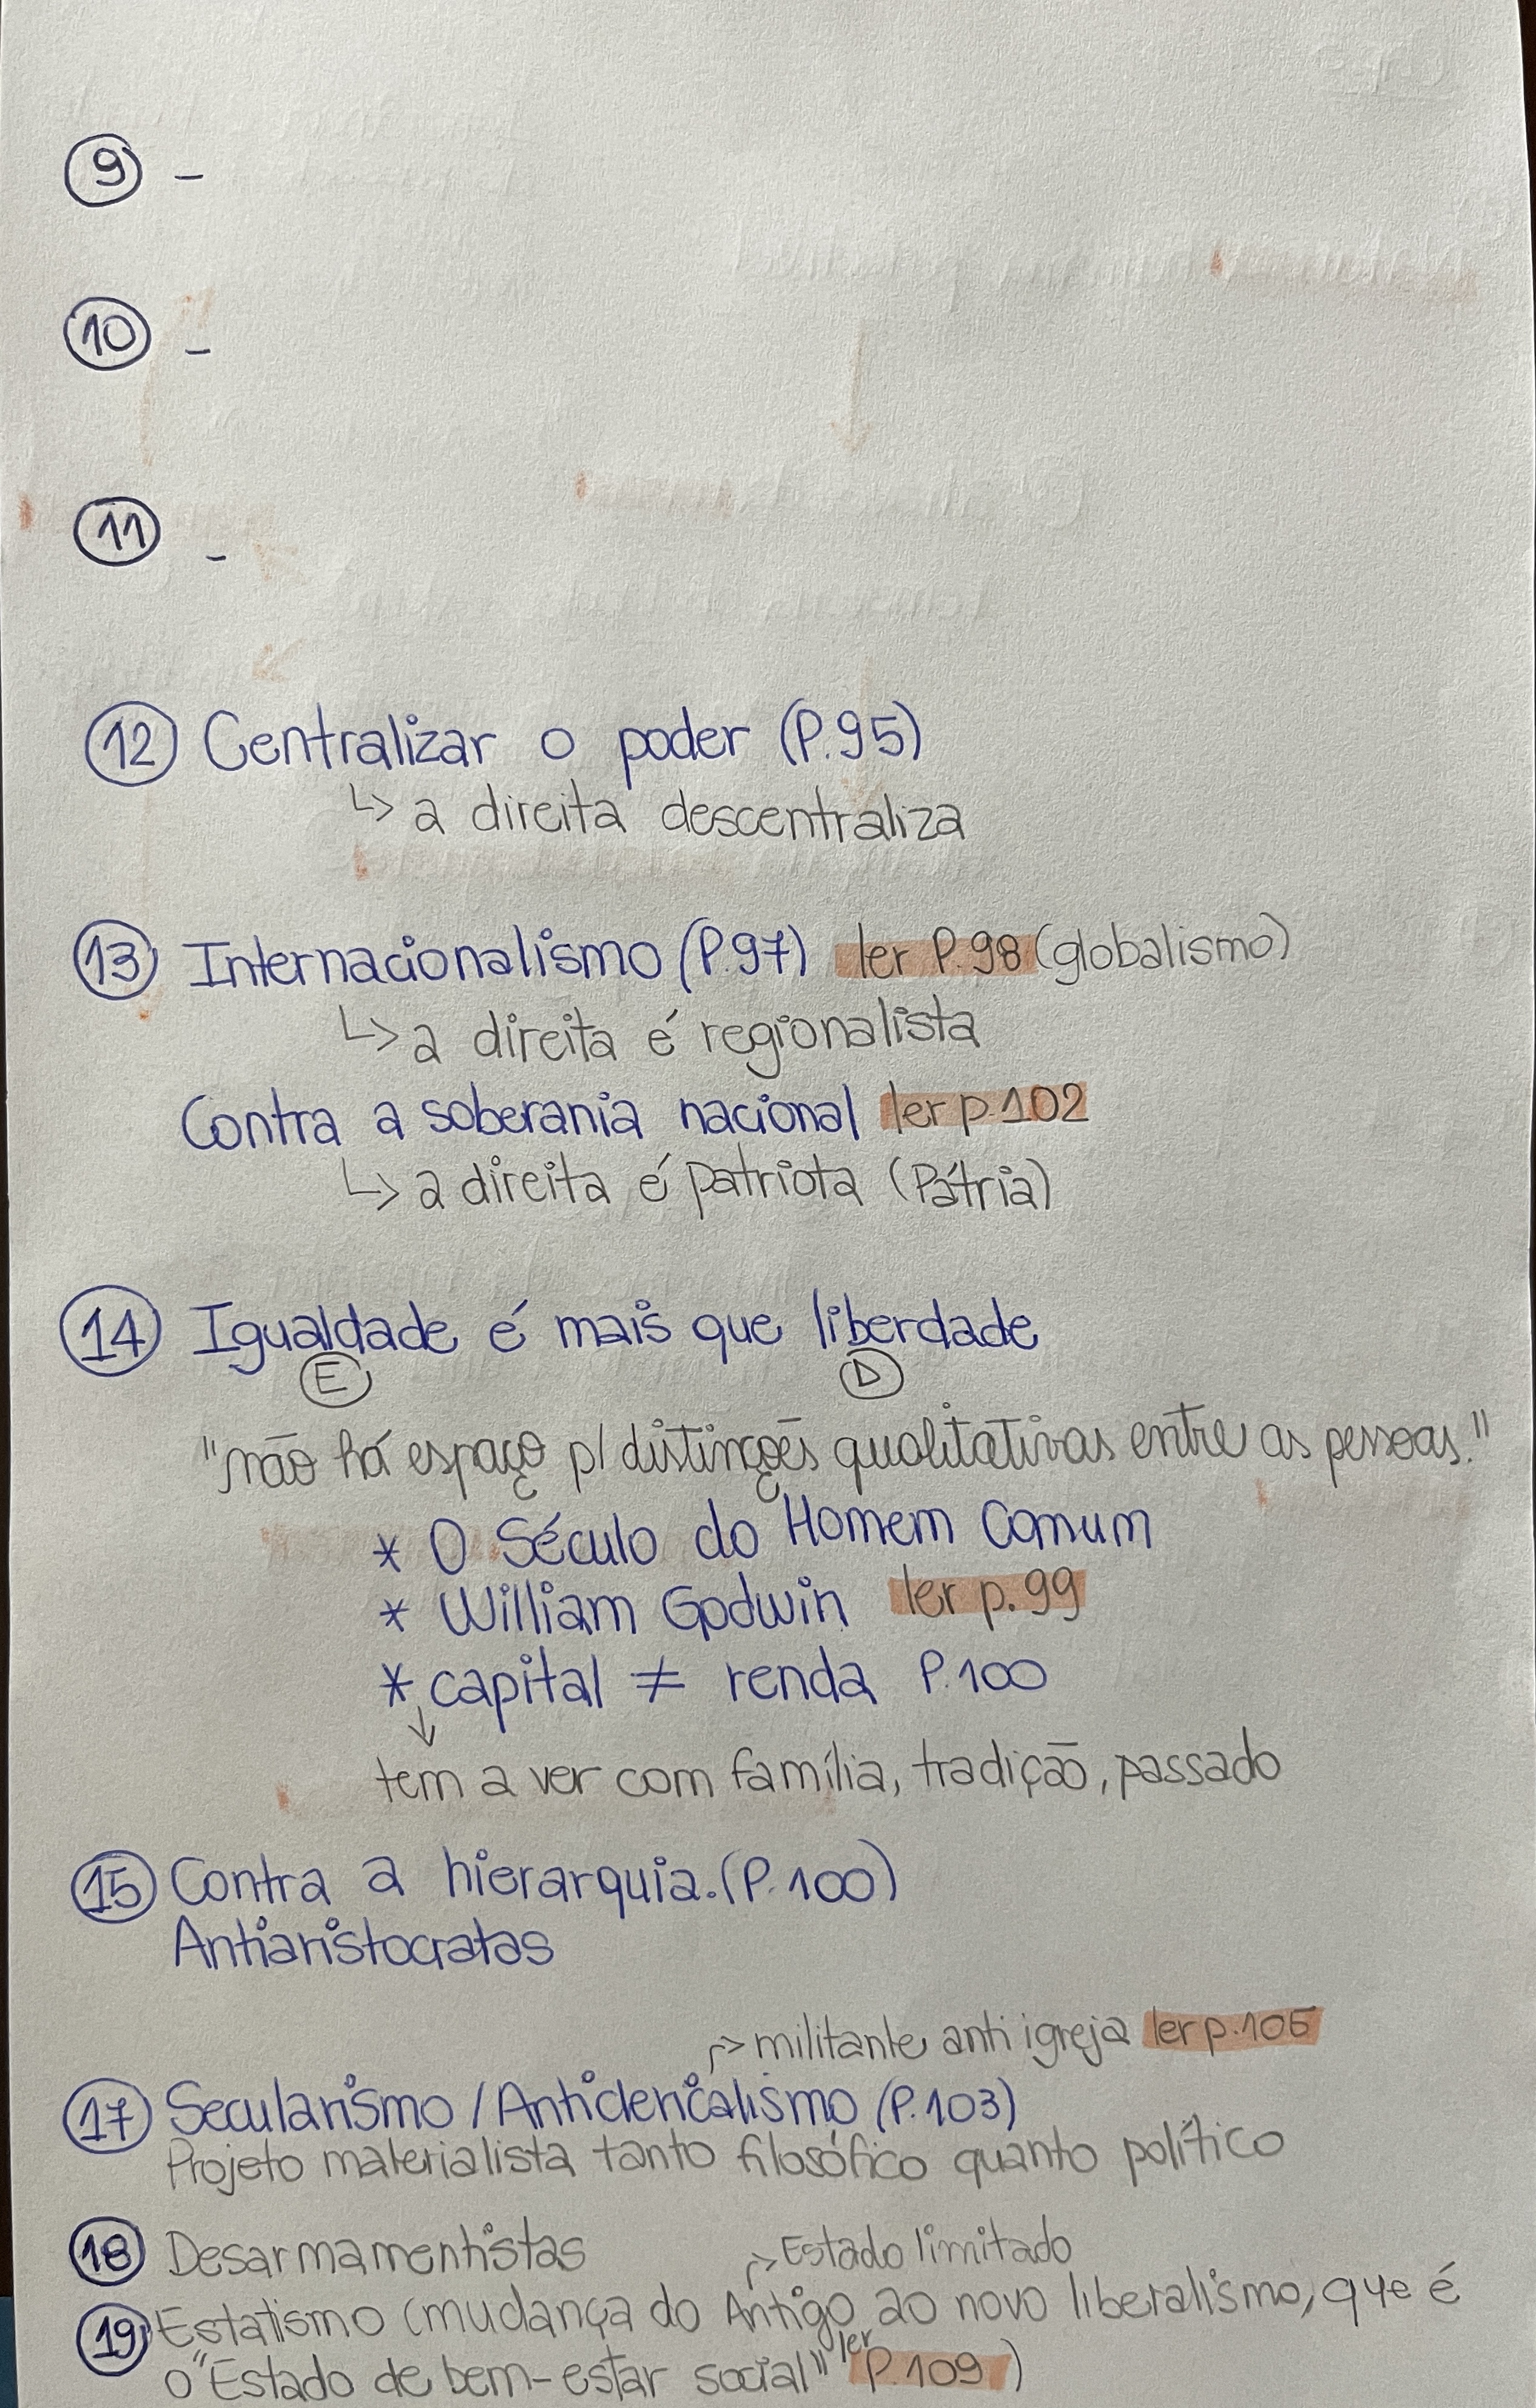 9 -
10 -
11 -
12 Centralizar o poder (P.95)
↳ a direita descentraliza
13 Internacionalismo (P.97) ler P.98 (globalismo)
↳ a direita é regionalista
Contra a soberania nacional ler p.102
↳ a direita é patriota (Pátria)
14 Igualdade é mais que liberdade
E D
"não há espaço p/ distinções qualitativas entre as pessoas."
* O Século do Homem Comum
* William Godwin ler p.99
* capital ≠ renda P.100
↓
tem a ver com família, tradição, passado
15 Contra a hierarquia. (P.100)
Antiaristocratas
↱ militante anti igreja ler p.105
17 Secularismo / Anticlericalismo (P.103)
Projeto materialista tanto filosófico quanto político
18 Desarmamentistas ↱ Estado limitado
19 Estatismo (mudança do Antigo ao novo liberalismo, que é
o "Estado de bem-estar social" ler P.109)